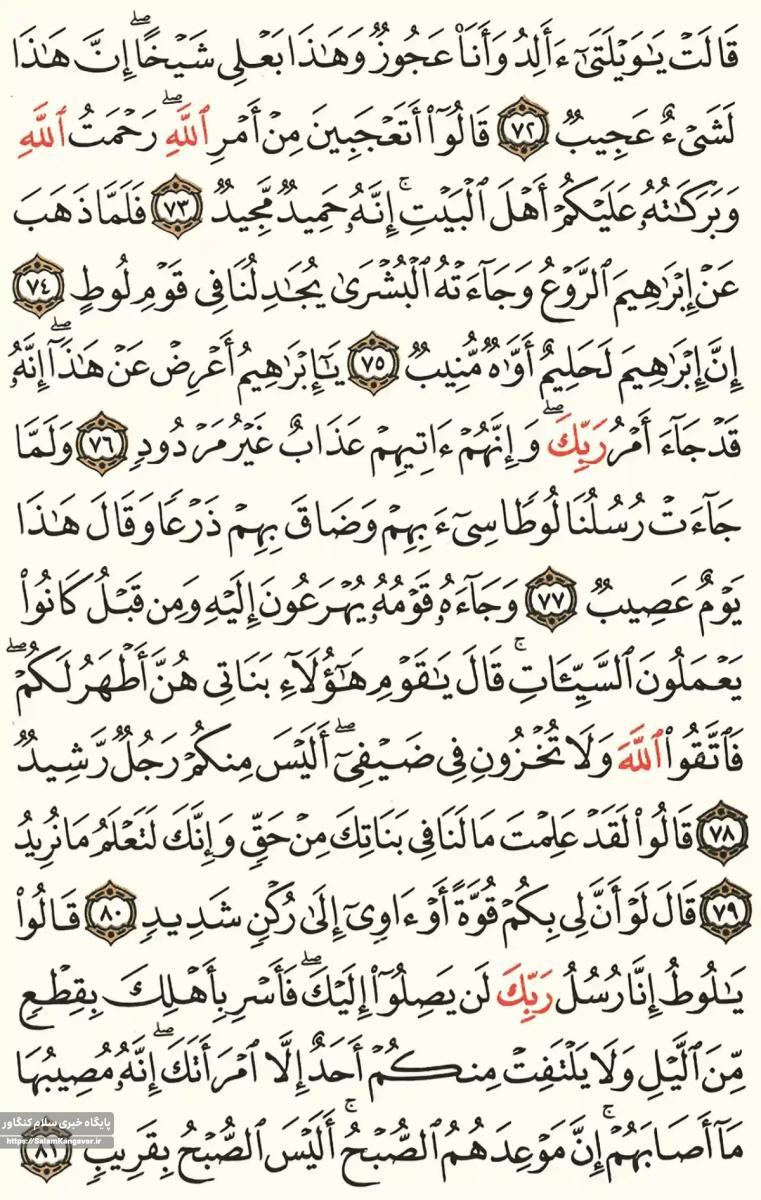 قَالَتْ يَٰوَيْلَتَىٰٓ ءَأَلِدُ وَأَنَا۠ عَجُوزٌ وَهَٰذَا بَعْلِى شَيْخًا ۖ إِنَّ هَٰذَا
لَشَىْءٌ عَجِيبٌ ﴿٧٢﴾ قَالُوٓا۟ أَتَعْجَبِينَ مِنْ أَمْرِ ٱللَّهِ ۖ رَحْمَتُ ٱللَّهِ
وَبَرَكَٰتُهُۥ عَلَيْكُمْ أَهْلَ ٱلْبَيْتِ ۚ إِنَّهُۥ حَمِيدٌ مَّجِيدٌ ﴿٧٣﴾ فَلَمَّا ذَهَبَ
عَنْ إِبْرَٰهِيمَ ٱلرَّوْعُ وَجَآءَتْهُ ٱلْبُشْرَىٰ يُجَٰدِلُنَا فِى قَوْمِ لُوطٍ ﴿٧٤﴾
إِنَّ إِبْرَٰهِيمَ لَحَلِيمٌ أَوَّٰهٌ مُّنِيبٌ ﴿٧٥﴾ يَٰٓإِبْرَٰهِيمُ أَعْرِضْ عَنْ هَٰذَآ ۖ إِنَّهُۥ
قَدْ جَآءَ أَمْرُ رَبِّكَ ۖ وَإِنَّهُمْ ءَاتِيهِمْ عَذَابٌ غَيْرُ مَرْدُودٍ ﴿٧٦﴾ وَلَمَّا
جَآءَتْ رُسُلُنَا لُوطًا سِىٓءَ بِهِمْ وَضَاقَ بِهِمْ ذَرْعًا وَقَالَ هَٰذَا
يَوْمٌ عَصِيبٌ ﴿٧٧﴾ وَجَآءَهُۥ قَوْمُهُۥ يُهْرَعُونَ إِلَيْهِ وَمِن قَبْلُ كَانُوا۟
يَعْمَلُونَ ٱلسَّيِّـَٔاتِ ۚ قَالَ يَٰقَوْمِ هَٰٓؤُلَآءِ بَنَاتِى هُنَّ أَطْهَرُ لَكُمْ ۖ
فَٱتَّقُوا۟ ٱللَّهَ وَلَا تُخْزُونِ فِى ضَيْفِىٓ ۖ أَلَيْسَ مِنكُمْ رَجُلٌ رَّشِيدٌ
﴿٧٨﴾ قَالُوا۟ لَقَدْ عَلِمْتَ مَا لَنَا فِى بَنَاتِكَ مِنْ حَقٍّ وَإِنَّكَ لَتَعْلَمُ مَا نُرِيدُ
﴿٧٩﴾ قَالَ لَوْ أَنَّ لِى بِكُمْ قُوَّةً أَوْ ءَاوِىٓ إِلَىٰ رُكْنٍ شَدِيدٍ ﴿٨٠﴾ قَالُوا۟
يَٰلُوطُ إِنَّا رُسُلُ رَبِّكَ لَن يَصِلُوٓا۟ إِلَيْكَ ۖ فَأَسْرِ بِأَهْلِكَ بِقِطْعٍ
مِّنَ ٱلَّيْلِ وَلَا يَلْتَفِتْ مِنكُمْ أَحَدٌ إِلَّا ٱمْرَأَتَكَ ۖ إِنَّهُۥ مُصِيبُهَا
مَآ أَصَابَهُمْ ۚ إِنَّ مَوْعِدَهُمُ ٱلصُّبْحُ ۚ أَلَيْسَ ٱلصُّبْحُ بِقَرِيبٍ ﴿٨١﴾
پایگاه خبری سلام کنگاور
https://SalamKangavar.ir